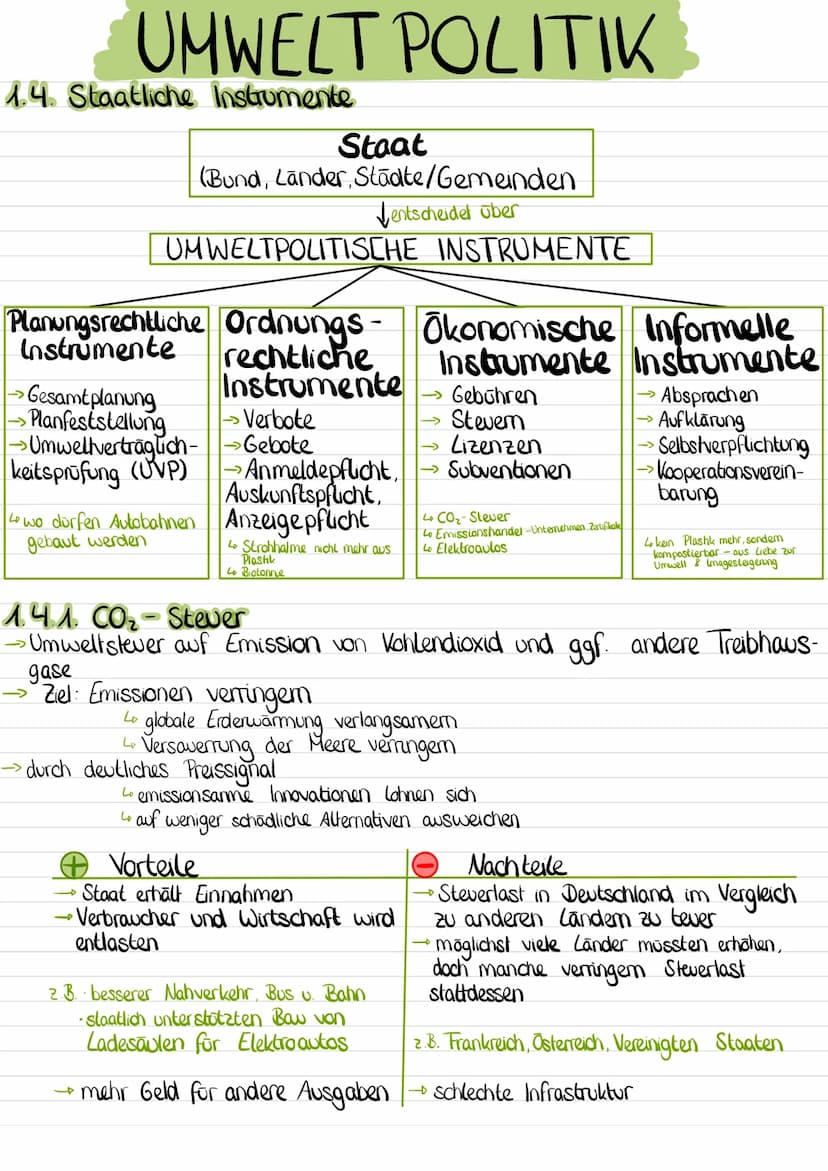 UMWELTPOLITIK
1.4. Staatliche Instrumente
Staat
(Bund, Länder, Städte/Gemeinden
entscheidet über
UMWELTPOLITISCHE INSTRUMENTE
Planungsrechtliche
Instrumente
→ Gesamtplanung
→ Planfeststellung
→ Umweltverträglich-
keitsprüfung (UVP)
↳ wo dürfen Autobahnen
gebaut werden
Ordnungs-
rechtliche
Instrumente
→ Verbote
→ Gebote
→ Anmeldepflicht,
Auskunftspflicht,
Anzeigepflicht
↳ Strohhalme nicht mehr aus
Plastik
↳ Biotonne
Ökonomische
Instrumente
→ Gebühren
→ Steuern
→ Lizenzen
→ Subventionen
↳ CO₂-Steuer
↳ Emissionshandel-Unternehmen. Zertifikate
↳ Elektroautos
Informelle
Instrumente
→ Absprachen
→ Aufklärung
→ Selbstverpflichtung
→ Kooperationsverein-
barung
↳ kein Plastik mehr, sondern
kompostierbar - aus Liebe zur
Umwelt & Imagesteigerung
1.4.1. CO₂-Steuer
→ Umweltsteuer auf Emission von Kohlendioxid und ggf. andere Treibhaus-
gase
→ Ziel: Emissionen verringern
↳ globale Erderwärmung verlangsamern
↳ Versauerrung der Meere verringern
→ durch deutliches Preissignal
↳ emissionsarme Innovationen lohnen sich
↳ auf weniger schädliche Alternativen ausweichen
+ Vorteile
→ Staat erhält Einnahmen
→ Verbraucher und Wirtschaft wird
entlasten
z.B. · besserer Nahverkehr, Bus u. Bahn
· staatlich unterstützten Bau von
Ladesäulen für Elektroautos
→ mehr Geld für andere Ausgaben
- Nachteile
→ Steuerlast in Deutschland im Vergleich
zu anderen Ländern zu teuer
→ möglichst viele Länder müssten erhöhen,
doch manche verringern Steuerlast
stattdessen
z.B. Frankreich, Österreich, Vereinigten Staaten
→ schlechte Infrastruktur